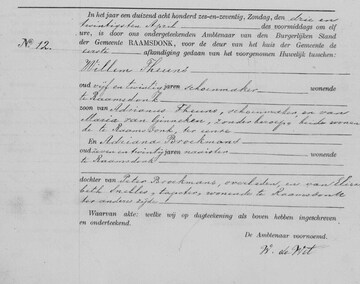 In het jaar een duizend acht honderd zes-en-zeventig, Zondag, den drie en
twintigsten April des voormiddags om elf
ure, is door ons ondergeteekenden Ambtenaar van den Burgerlijken Stand
der Gemeente RAAMSDONK, voor de deur van het huis der Gemeente de
No 12. eerste afkondiging gedaan van het voorgenomen Huwelijk tusschen:
Willem Theuns
oud vijf en twintig jaren schoenmaker wonende
te Raamsdonk
zoon van Adrianus Theuns, schoenmaker, en van
Maria van Ginneken, zonder beroep beide wonen
de te Raamsdonk, ter eenre
En Adriana Broekmans
oud zeven en twintig jaren naaister wonende
te Raamsdonk
dochter van Peter Broekmans, overleden, en van Elisa
beth Snebles, wonende te Raamsdonk
ter andere zijde.
Waarvan akte: welke wij op dagteekening als boven hebben ingeschreven
en onderteekend.
De Ambtenaar voornoemd.
W. de Wit